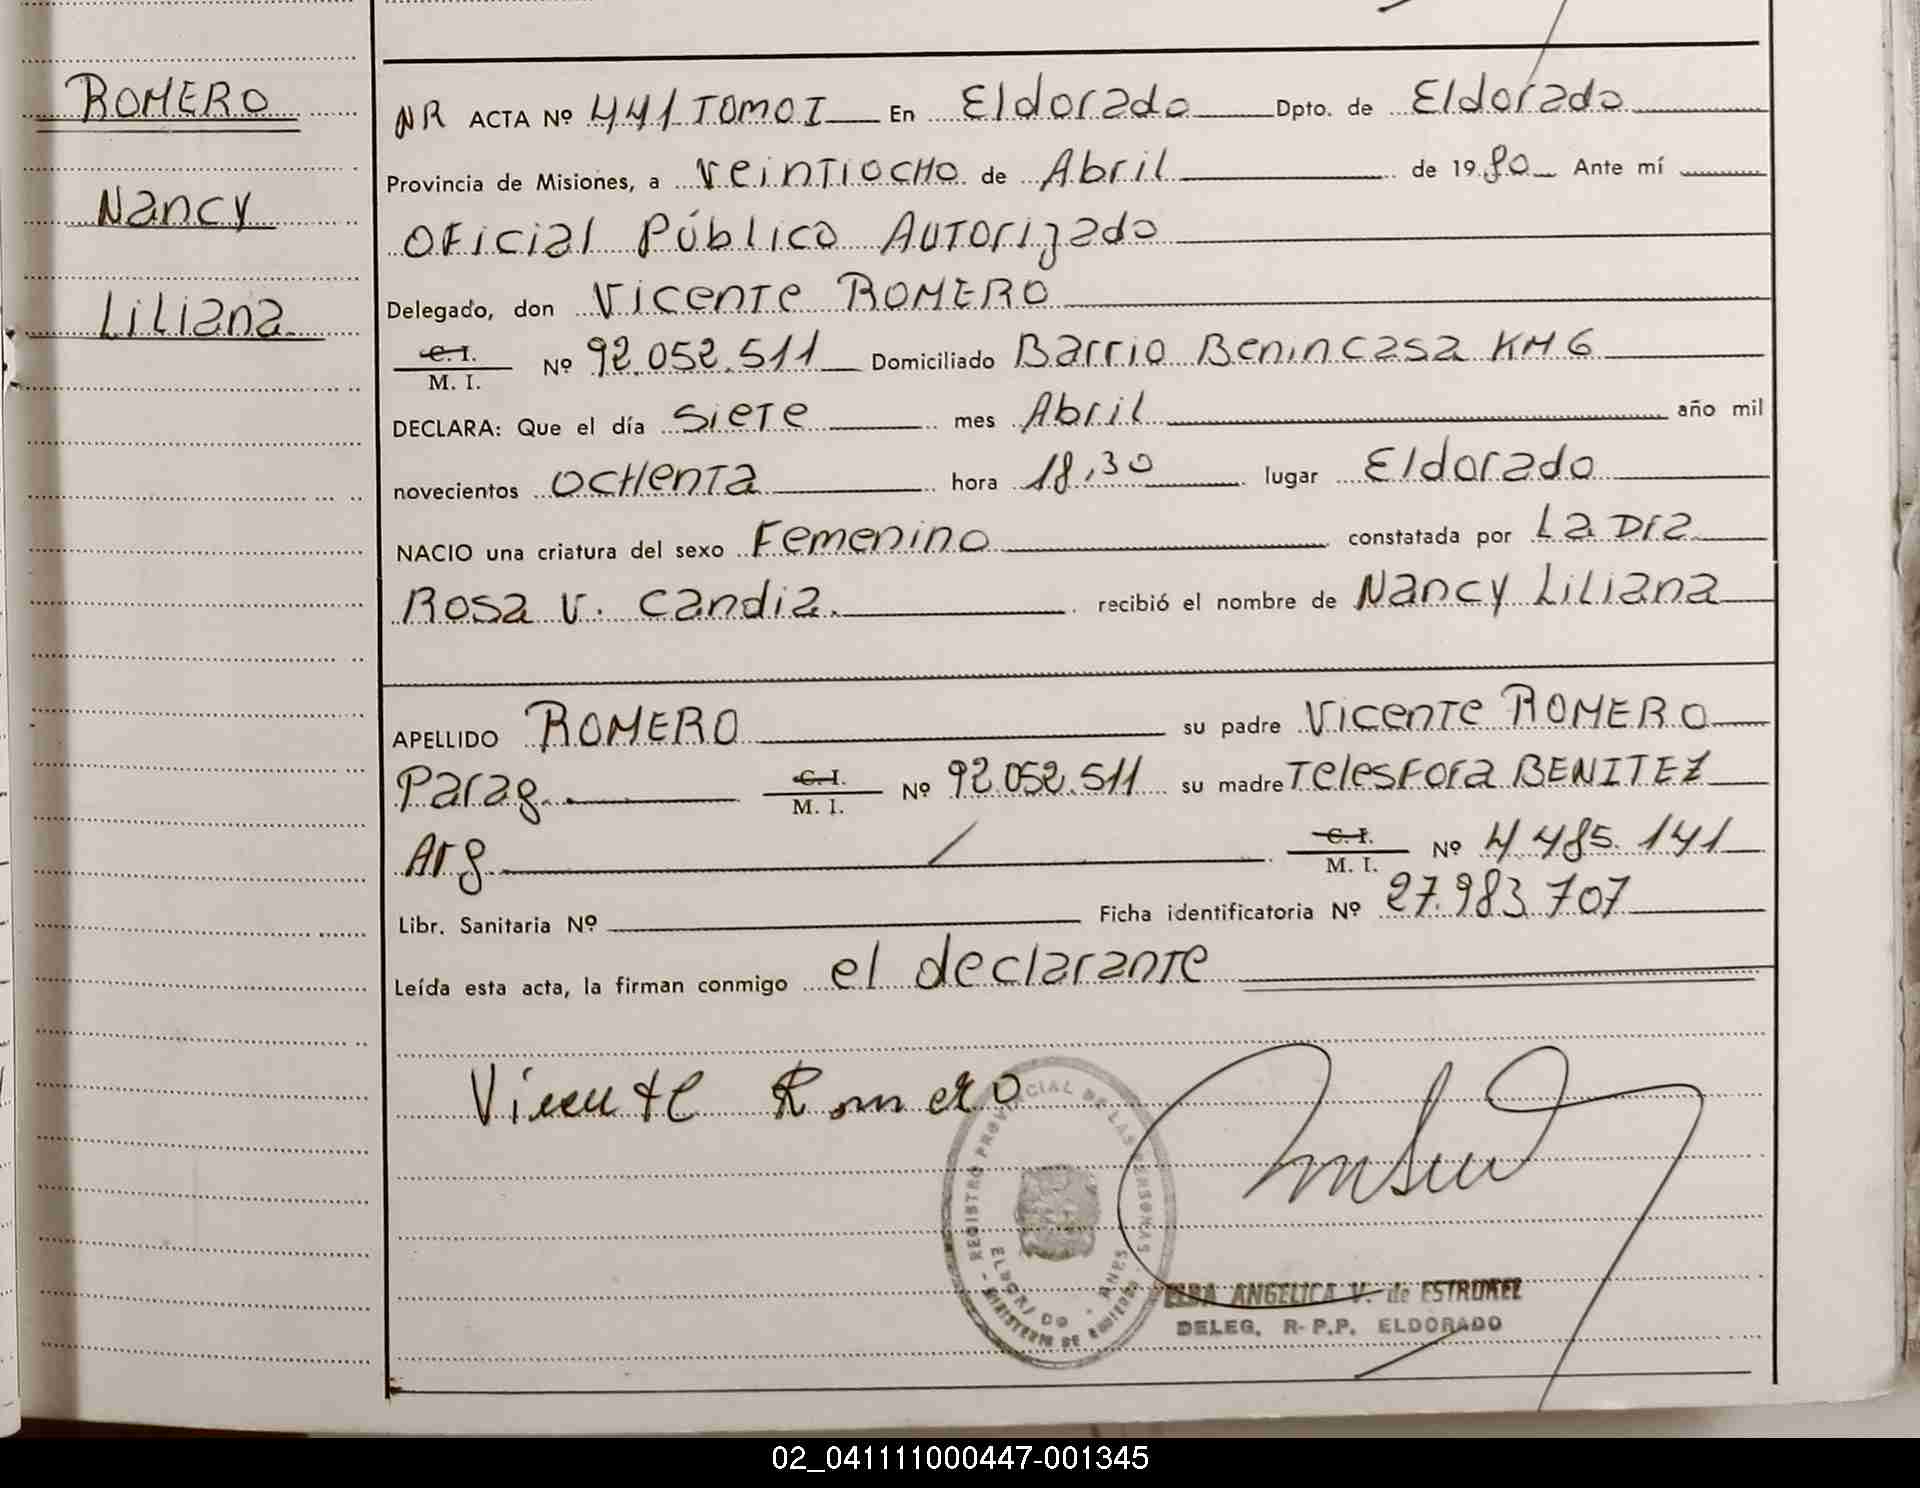 ROMERO
Nancy
Liliana
NR ACTA Nº 441 TOMO I En Eldorado Dpto. de Eldorado
Provincia de Misiones, a veintiocho de Abril de 1980 Ante mí
Oficial Público Autorizado
Delegado, don Vicente ROMERO
C. I.
M. I. Nº 92.052.511 Domiciliado Barrio Benincasa KM 6
DECLARA: Que el día siete mes Abril año mil
novecientos ochenta hora 18,30 lugar Eldorado
NACIO una criatura del sexo Femenino constatada por La Dra
Rosa V. Candia. recibió el nombre de Nancy Liliana
APELLIDO ROMERO su padre Vicente ROMERO
Parag. C. I. M. I. Nº 92.052.511 su madre Telesfora BENITEZ
Arg C. I. M. I. Nº 4.485.141
Libr. Sanitaria Nº Ficha identificatoria Nº 27.983.707
Leída esta acta, la firman conmigo el declarante
Vicente Romero
REGISTRO PROVINCIAL DE LAS PERSONAS
ELDORADO
MINISTERIO DE GOBIERNO
ELBA ANGELICA V. de
DELEG. R-P.P. ELDORADO
02_041111000447-001345